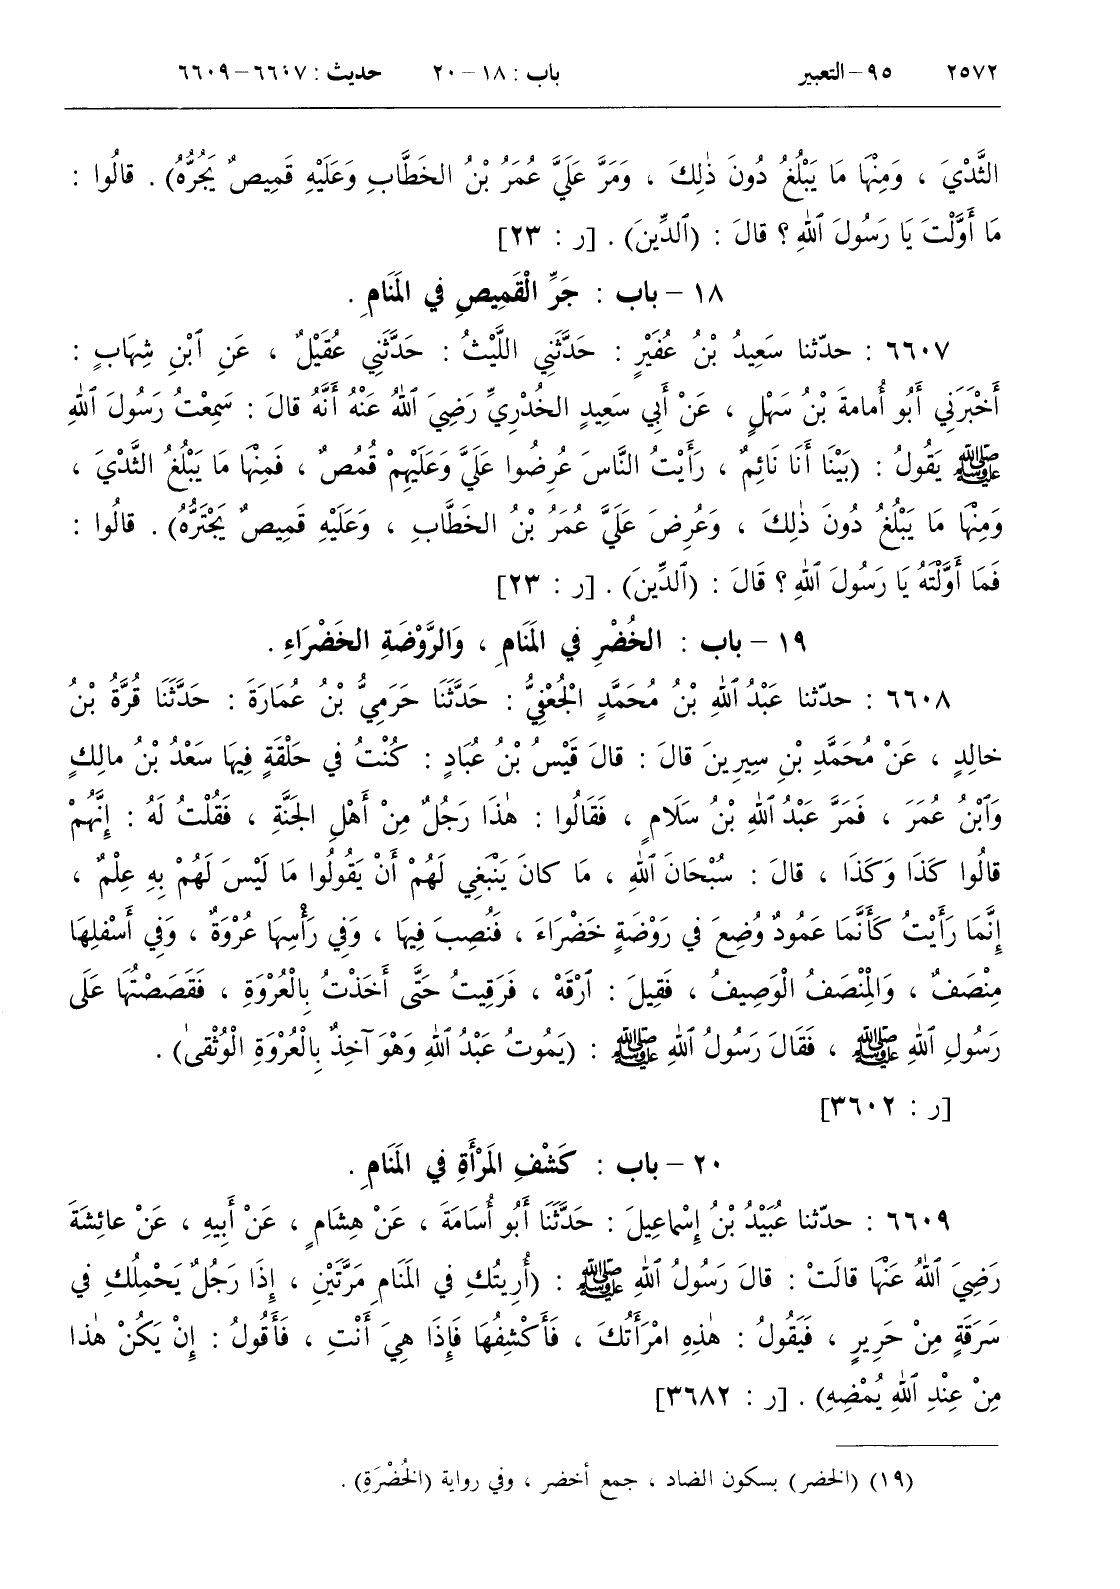 ٢٥٧٢ ٩٥ – التعبير باب : ١٨ – ٢٠ حديث : ٦٦٠٧ – ٦٦٠٩
الثَّدْيَ ، وَمِنْهَا مَا يَبْلُغُ دُونَ ذٰلِكَ ، وَمَرَّ عَلَيَّ عُمَرُ بْنُ الخَطَّابِ وَعَلَيْهِ قَمِيصٌ يَجُرُّهُ) . قالُوا :
مَا أَوَّلْتَ يَا رَسُولَ ٱللهِ ؟ قالَ : (ٱلدِّينَ) . [ر : ٢٣]
١٨ – باب : جَرِّ الْقَمِيصِ في المَنَامِ .
٦٦٠٧ : حدّثنا سَعِيدُ بْنُ عُفَيْرٍ : حَدَّثَنِي اللَّيْثُ : حَدَّثَنِي عُقَيْلٌ ، عَنِ ٱبْنِ شِهَابٍ :
أَخْبَرَنِي أَبُو أُمامَةَ بْنُ سَهْلٍ ، عَنْ أَبِي سَعِيدٍ الخُدْرِيِّ رَضِيَ ٱللهُ عَنْهُ أَنَّهُ قالَ : سَمِعْتُ رَسُولَ ٱللهِ
ﷺ يَقُولُ : (بَيْنَا أَنَا نَائِمٌ ، رَأَيْتُ النَّاسَ عُرِضُوا عَلَيَّ وَعَلَيْهِمْ قُمُصٌ ، فَمِنْهَا مَا يَبْلُغُ الثَّدْيَ ،
وَمِنْهَا مَا يَبْلُغُ دُونَ ذٰلِكَ ، وَعُرِضَ عَلَيَّ عُمَرُ بْنُ الخَطَّابِ ، وَعَلَيْهِ قَمِيصٌ يَجْتَرُّهُ) . قالُوا :
فَمَا أَوَّلْتَهُ يَا رَسُولَ ٱللهِ ؟ قَالَ : (ٱلدِّينَ) . [ر : ٢٣]
١٩ – باب : الخُضْرِ في المَنَامِ ، وَالرَّوْضَةِ الخَضْرَاءِ .
٦٦٠٨ : حدّثنا عَبْدُ ٱللهِ بْنُ مُحَمَّدٍ الْجُعْفِيُّ : حَدَّثَنَا حَرَمِيُّ بْنُ عُمَارَةَ : حَدَّثَنَا قُرَّةُ بْنُ
خالِدٍ ، عَنْ مُحَمَّدِ بْنِ سِيرِينَ قالَ : قالَ قَيْسُ بْنُ عُبَادٍ : كُنْتُ في حَلْقَةٍ فِيهَا سَعْدُ بْنُ مالِكٍ
وَٱبْنُ عُمَرَ ، فَمَرَّ عَبْدُ ٱللهِ بْنُ سَلَامٍ ، فَقَالُوا : هٰذَا رَجُلٌ مِنْ أَهْلِ الجَنَّةِ ، فَقُلْتُ لَهُ : إِنَّهُمْ
قالُوا كَذَا وَكَذَا ، قالَ : سُبْحَانَ ٱللهِ ، مَا كانَ يَنْبَغِي لَهُمْ أَنْ يَقُولُوا مَا لَيْسَ لَهُمْ بِهِ عِلْمٌ ،
إِنَّمَا رَأَيْتُ كَأَنَّمَا عَمُودٌ وُضِعَ في رَوْضَةٍ خَضْرَاءَ ، فَنُصِبَ فِيهَا ، وَفي رَأْسِهَا عُرْوَةٌ ، وَفي أَسْفَلِهَا
مِنْصَفٌ ، وَالْمِنْصَفُ الْوَصِيفُ ، فَقِيلَ : ٱرْقَهْ ، فَرَقِيتُ حَتَّى أَخَذْتُ بِالْعُرْوَةِ ، فَقَصَصْتُهَا عَلَى
رَسُولِ ٱللهِ ﷺ ، فَقَالَ رَسُولُ ٱللهِ ﷺ : (يَمُوتُ عَبْدُ ٱللهِ وَهْوَ آخِذٌ بِالْعُرْوَةِ الْوُثْقىٰ) .
[ر : ٣٦٠٢]
٢٠ – باب : كَشْفِ المَرْأَةِ في المَنَامِ .
٦٦٠٩ : حدّثنا عُبَيْدُ بْنُ إِسْمَاعِيلَ : حَدَّثَنَا أَبُو أُسَامَةَ ، عَنْ هِشَامٍ ، عَنْ أَبِيهِ ، عَنْ عائِشَةَ
رَضِيَ ٱللهُ عَنْهَا قالَتْ : قالَ رَسُولُ ٱللهِ ﷺ : (أُرِيتُكِ في المَنَامِ مَرَّتَيْنِ ، إِذَا رَجُلٌ يَحْمِلُكِ في
سَرَقَةٍ مِنْ حَرِيرٍ ، فَيَقُولُ : هٰذِهِ امْرَأَتُكَ ، فَأَكْشِفُهَا فَإِذَا هِيَ أَنْتِ ، فَأَقُولُ : إِنْ يَكُنْ هٰذا
مِنْ عِنْدِ ٱللهِ يُمْضِهِ) . [ر : ٣٦٨٢]
(١٩) (الخضر) بسكون الضاد ، جمع أخضر ، وفي رواية (الْخُضْرَةِ) .